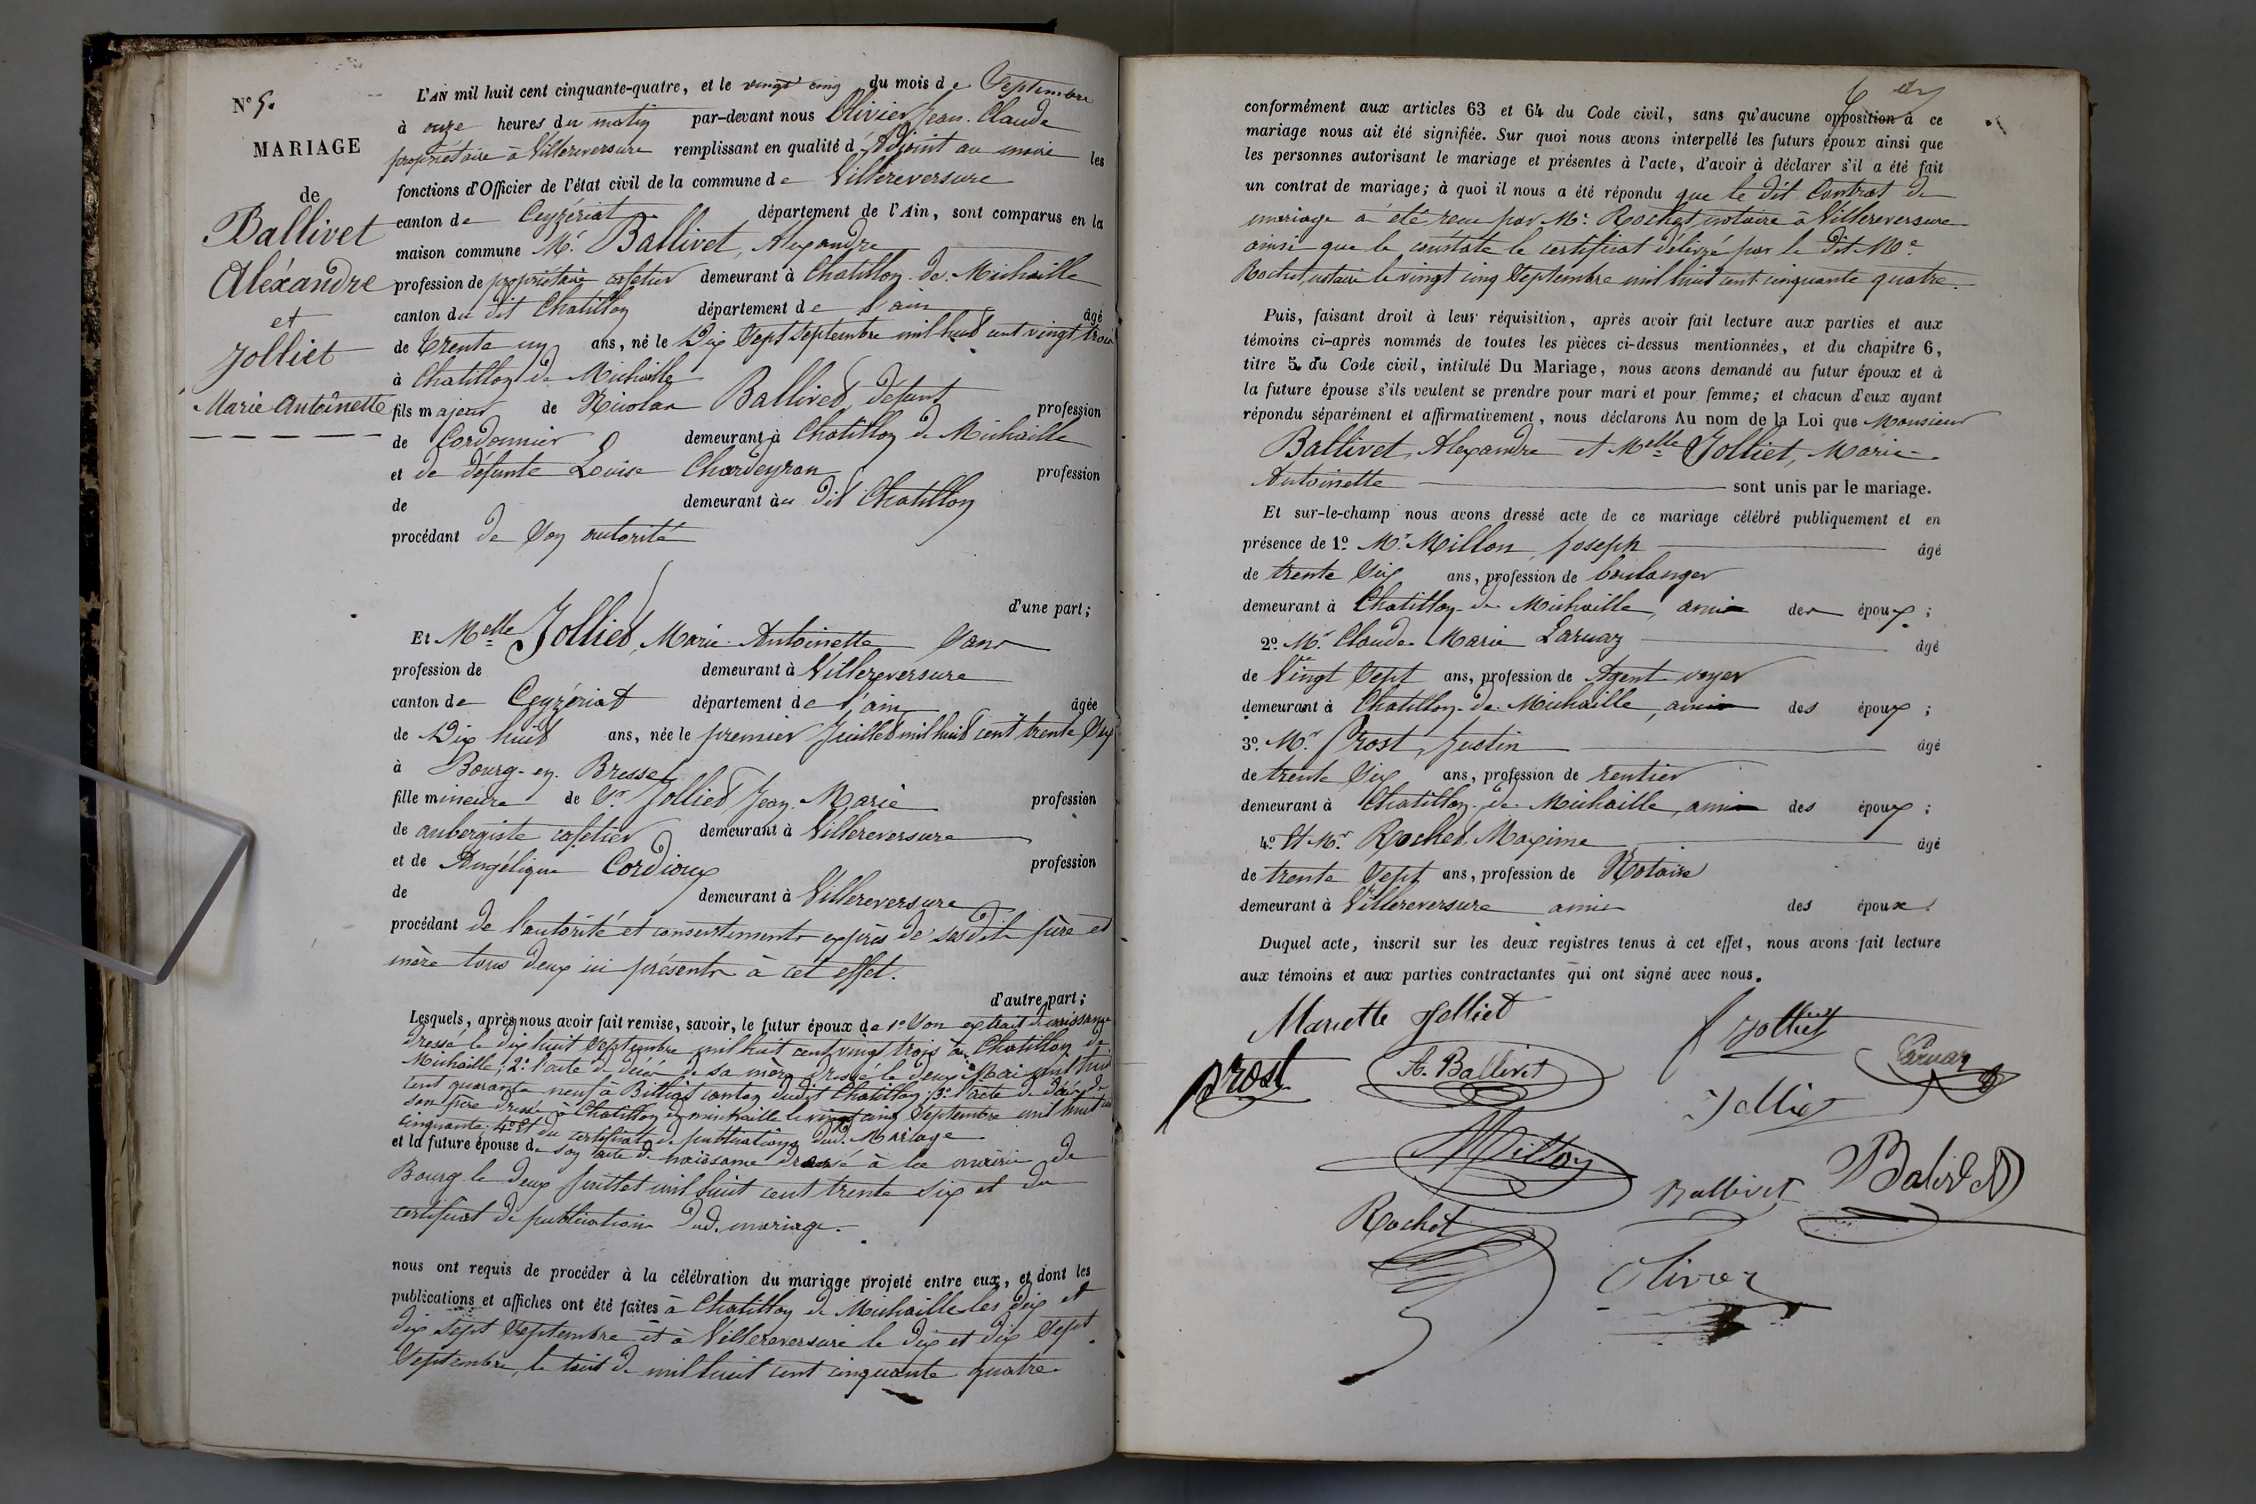 N° 5.
MARIAGE
de
Ballivet
Aléxandre
et
Jolliet
Marie Antoinette
L'AN mil huit cent cinquante-quatre, et le vingt cinq du mois de Septembre
à onze heures du matin par-devant nous Olivier Jean-Claude
propriétaire à Villereversure remplissant en qualité d'Adjoint au maire les
fonctions d'Officier de l'état civil de la commune de Villereversure
canton de Ceyzériat département de l'Ain, sont comparus en la
maison commune Mr. Ballivet, Alexandre
profession de propriétaire cafetier demeurant à Chatillon-de-Michaille
canton du dit Chatillon département de l'ain âgé
de Trente un ans, né le Dix Sept Septembre mil huit cent vingt trois
à Chatillon de Michaille
fils majeur de Nicolas Ballivet, défunt profession
de Cordonnier demeurant à Chatillon de Michaille
et de défunte Louise Chardeyron profession
de demeurant au dit Chatillon
procédant de son autorité
d'une part;
Et Melle Jolliet, Marie-Antoinette Sans
profession de demeurant à Villereversure
canton de Ceyzériat département de l'ain âgée
de Dix huit ans, née le premier Juillet mil huit cent trente Six
à Bourg-en-Bresse
fille mineure de Sr. Jolliet Jean-Marie profession
de aubergiste cafetier demeurant à Villereversure
et de Angélique Cordioux profession
de demeurant à Villereversure
procédant de l'autorité et consentements exprès de ses dits père et
mère tous deux ici présents à cet effet.
d'autre part;
Lesquels, après nous avoir fait remise, savoir, le futur époux de 1° Son extrait de naissance
dressé le dix huit Septembre mil huit cent vingt trois à Chatillon de
Michaille; 2° l'acte de décès de sa mère dressé le deux Mai mil huit
cent quarante neuf à Billiat canton dudit Chatillon; 3° l'acte de décès de
son père dressé à Chatillon de michaille le vingt cinq Septembre mil huit cent
cinquante; 4° Et du certificat de publications dud. Mariage
et la future épouse de son acte de naissance dressé à la mairie de
Bourg le deux Juillet mil huit cent trente six et du
certificat de publication dud. mariage.
nous ont requis de procéder à la célébration du mariage projeté entre eux, et dont les
publications et affiches ont été faites à Chatillon de Michaille les dix et
dix sept Septembre et à Villereversure le dix et dix Sept
Septembre, le tout de mil huit cent cinquante quatre
conformément aux articles 63 et 64 du Code civil, sans qu'aucune opposition à ce
mariage nous ait été signifiée. Sur quoi nous avons interpellé les futurs époux ainsi que
les personnes autorisant le mariage et présentes à l'acte, d'avoir à déclarer s'il a été fait
un contrat de mariage; à quoi il nous a été répondu que le dit Contrat de
mariage a été reçu par Me. Rochet notaire à Villereversure
ainsi que le constate le certificat délivré par le dit Me.
Rochet, notaire le vingt cinq Septembre mil huit cent cinquante quatre.
Puis, faisant droit à leur réquisition, après avoir fait lecture aux parties et aux
témoins ci-après nommés de toutes les pièces ci-dessus mentionnées, et du chapitre 6,
titre 5 du Code civil, intitulé Du Mariage, nous avons demandé au futur époux et à
la future épouse s'ils veulent se prendre pour mari et pour femme; et chacun d'eux ayant
répondu séparément et affirmativement, nous déclarons Au nom de la Loi que Monsieur
Ballivet, Alexandre et Melle Jolliet, Marie-
Antoinette sont unis par le mariage.
Et sur-le-champ nous avons dressé acte de ce mariage célébré publiquement et en
présence de 1° Mr. Millon, Joseph âgé
de trente Six ans, profession de boulanger
demeurant à Chatillon-de-Michaille, ami des époux;
2° Mr. Claude-Marie Laruaz âgé
de Vingt Sept ans, profession de Agent-voyer
demeurant à Chatillon-de-Michaille, ami des époux;
3° Mr. Prost, Justin âgé
de trente Six ans, profession de rentier
demeurant à Chatillon-de-Michaille, ami des époux;
4° Et Mr. Rochet, Maxime âgé
de trente Sept ans, profession de Notaire
demeurant à Villereversure ami des époux.
Duquel acte, inscrit sur les deux registres tenus à cet effet, nous avons fait lecture
aux témoins et aux parties contractantes qui ont signé avec nous.
Mariette Jolliet
Jolliet
Prost
A. Ballivet
Laruaz
Jolliet
Millon
Ballivet
Balivet
Rochet
Olivier